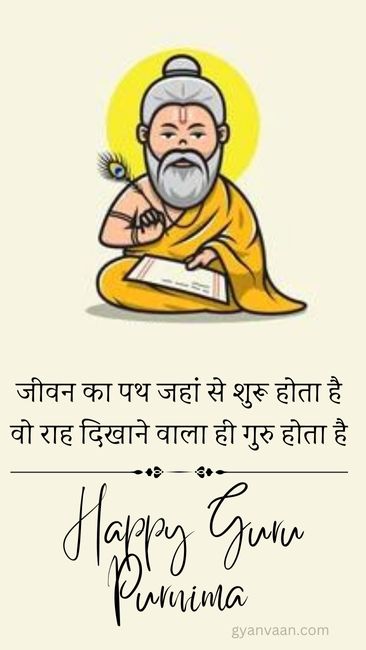 जीवन का पथ जहां से शुरू होता है
वो राह दिखाने वाला ही गुरु होता है
Happy Guru
Purnima
gyanvaan.com